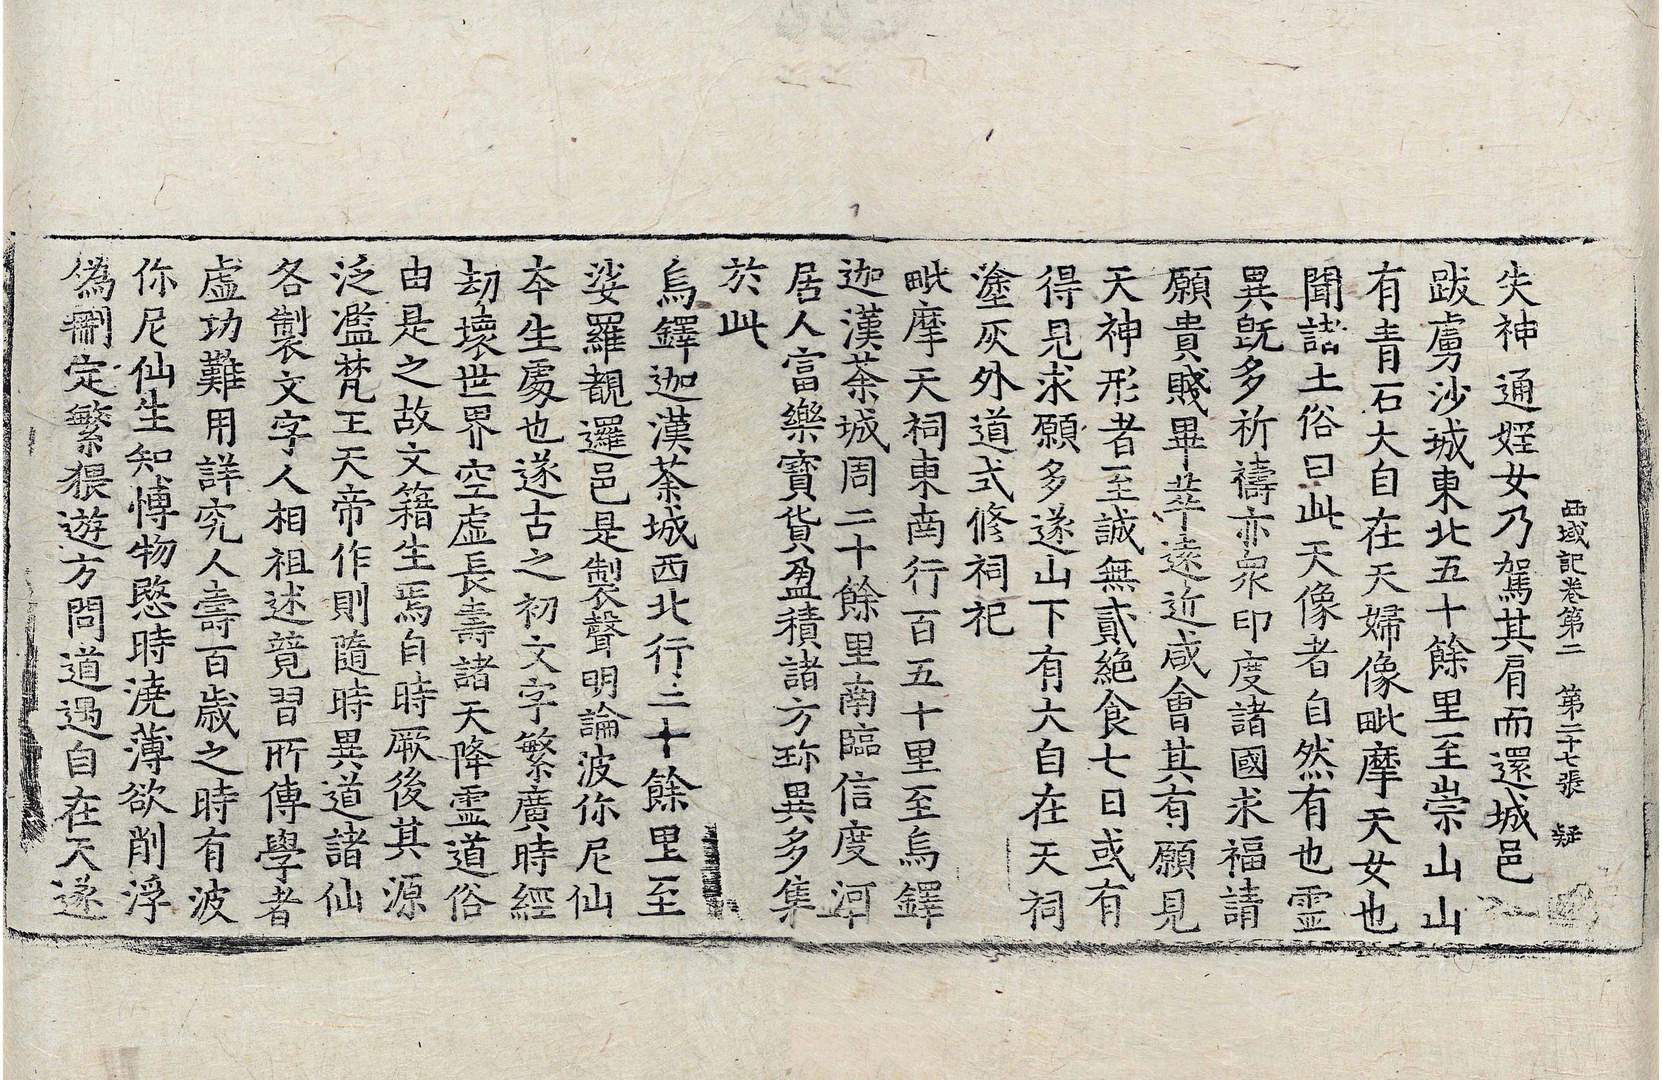 西域記卷第二　第二十七張　疑
失神通婬女乃駕其肩而還城邑
跋虜沙城東北五十餘里至崇山山
有青石大自在天婦像毗摩天女也
聞諸土俗曰此天像者自然有也靈
異旣多祈禱亦衆印度諸國求福請
願貴賤畢萃遠近咸會其有願見
天神形者至誠無貳絶食七日或有
得見求願多遂山下有大自在天祠
塗灰外道式修祠祀
毗摩天祠東南行百五十里至烏鐸
迦漢荼城周二十餘里南臨信度河
居人富樂寶貨盈積諸方珎異多集
於此
烏鐸迦漢荼城西北行二十餘里至
娑羅覩邏邑是製聲明論波你尼仙
夲生處也遂古之初文字繁廣時經
劫壞世界空虛長壽諸天降靈道俗
由是之故文籍生焉自時厥後其源
泛濫梵王天帝作則隨時異道諸仙
各製文字人相祖述競習所傳學者
虛功難用詳究人壽百歲之時有波
你尼仙生知愽物愍時澆薄欲削浮
僞刪定繁猥遊方問道遇自在天遂